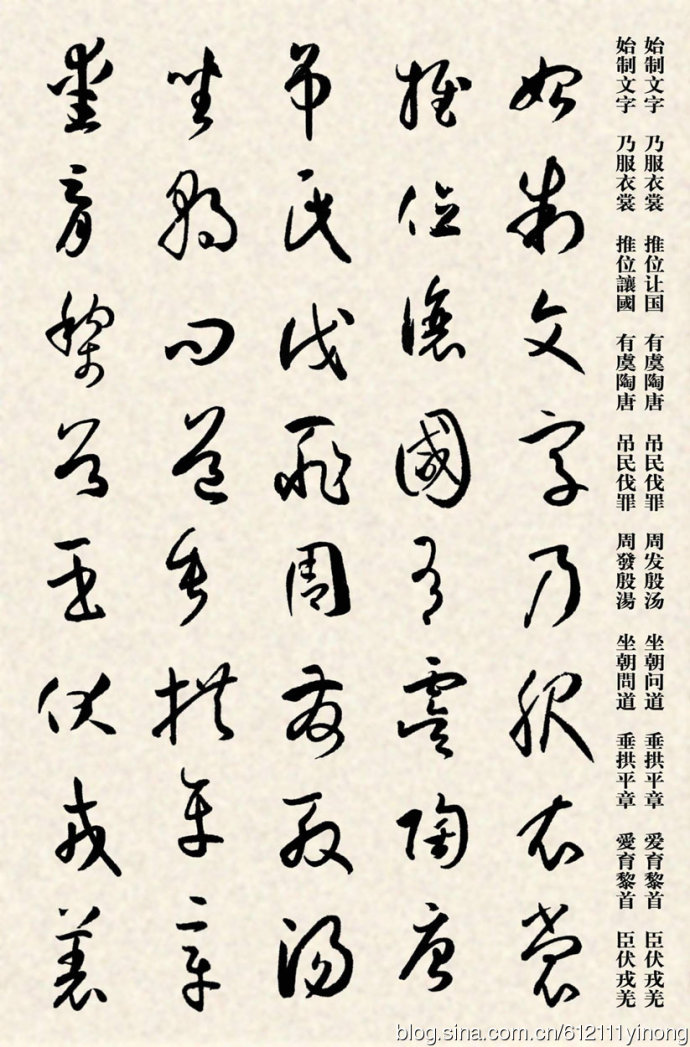 始制文字 乃服衣裳 推位让国 有虞陶唐 吊民伐罪 周发殷汤 坐朝问道 垂拱平章 爱育黎首 臣伏戎羌
始制文字 乃服衣裳 推位讓國 有虞陶唐 吊民伐罪 周發殷湯 坐朝問道 垂拱平章 愛育黎首 臣伏戎羌
始制文字乃服衣裳
推位讓國有虞陶唐
吊民伐罪周發殷湯
坐朝問道垂拱平章
愛育黎首臣伏戎羌
blog.sina.com.cn/612111yinong